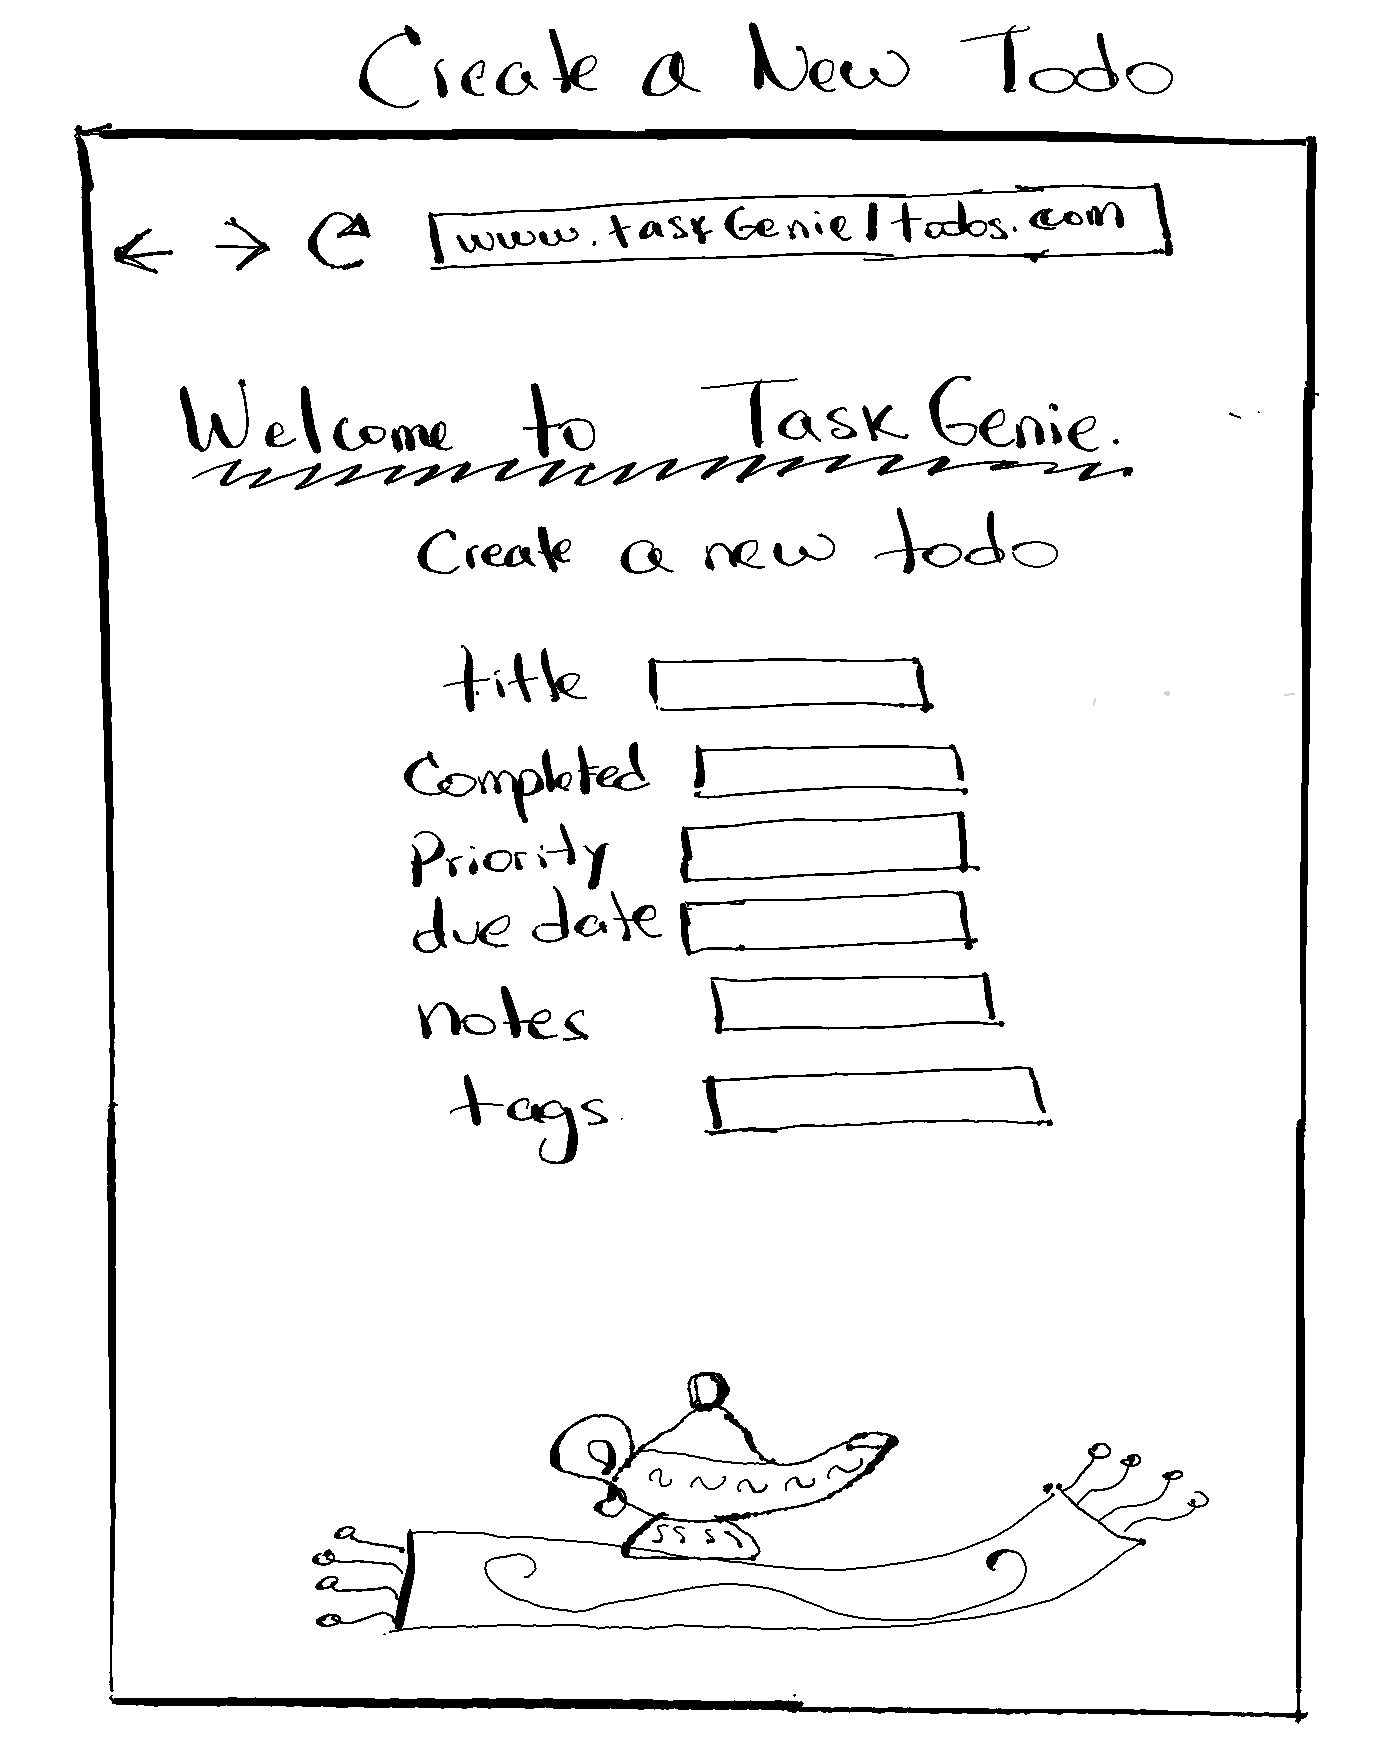 Create a New Todo
www.taskGenie/todos.com
Welcome to TaskGenie.
Create a new todo
title
Completed
Priority
due date
notes
tags.